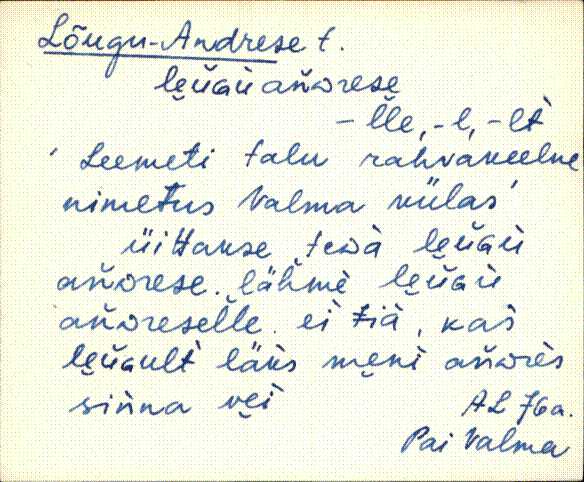 Lõugu-Andrese t.
le̮u̬G̀ù añDrese
- l̆le, -l, -lt̀
'Leemeti talu rahvakeelne
nimetus Valma külas'
üittakse teDà le̮ŭGù
añDrese. lähmè le̮ŭGù
añDresel̆le. ei tià, kas
le̮ŭGult̀ läks me̮ni añDrès
siǹna ve̮i
AL 76a.
Pai Valma